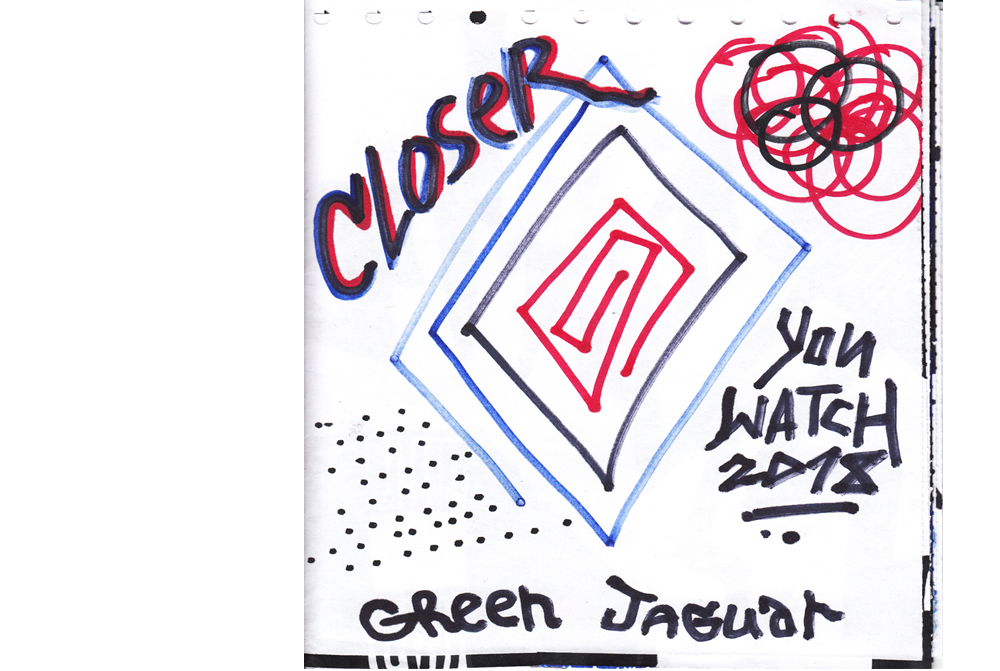 CLoseR
you
WATCH
2018
GReen JAGuar